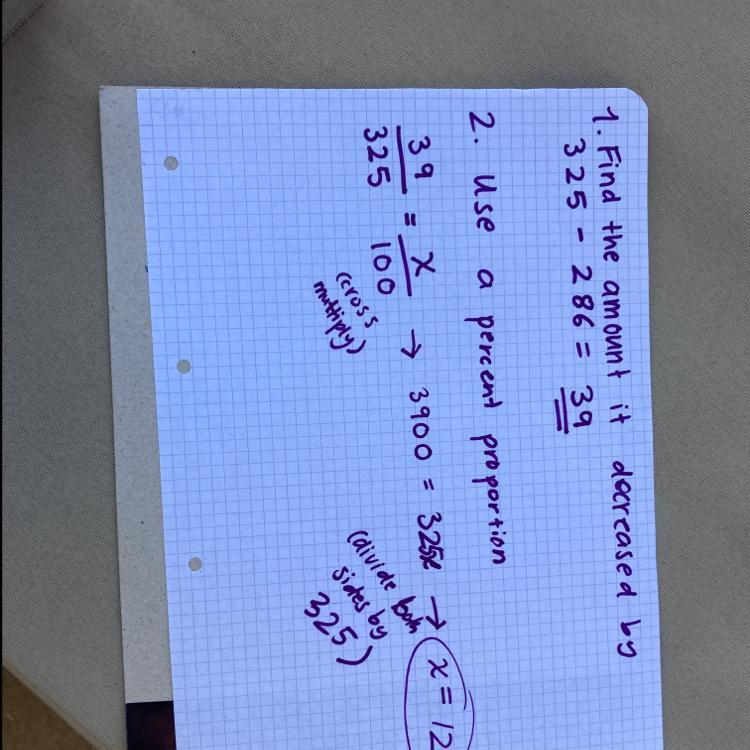 1. Find the amount it decreased by
325 - 286 = 39
2. Use a percent proportion
39/325 = x/100 → 3900 = 325x → x = 12
(cross
multiply)
(divide both
sides by
325)